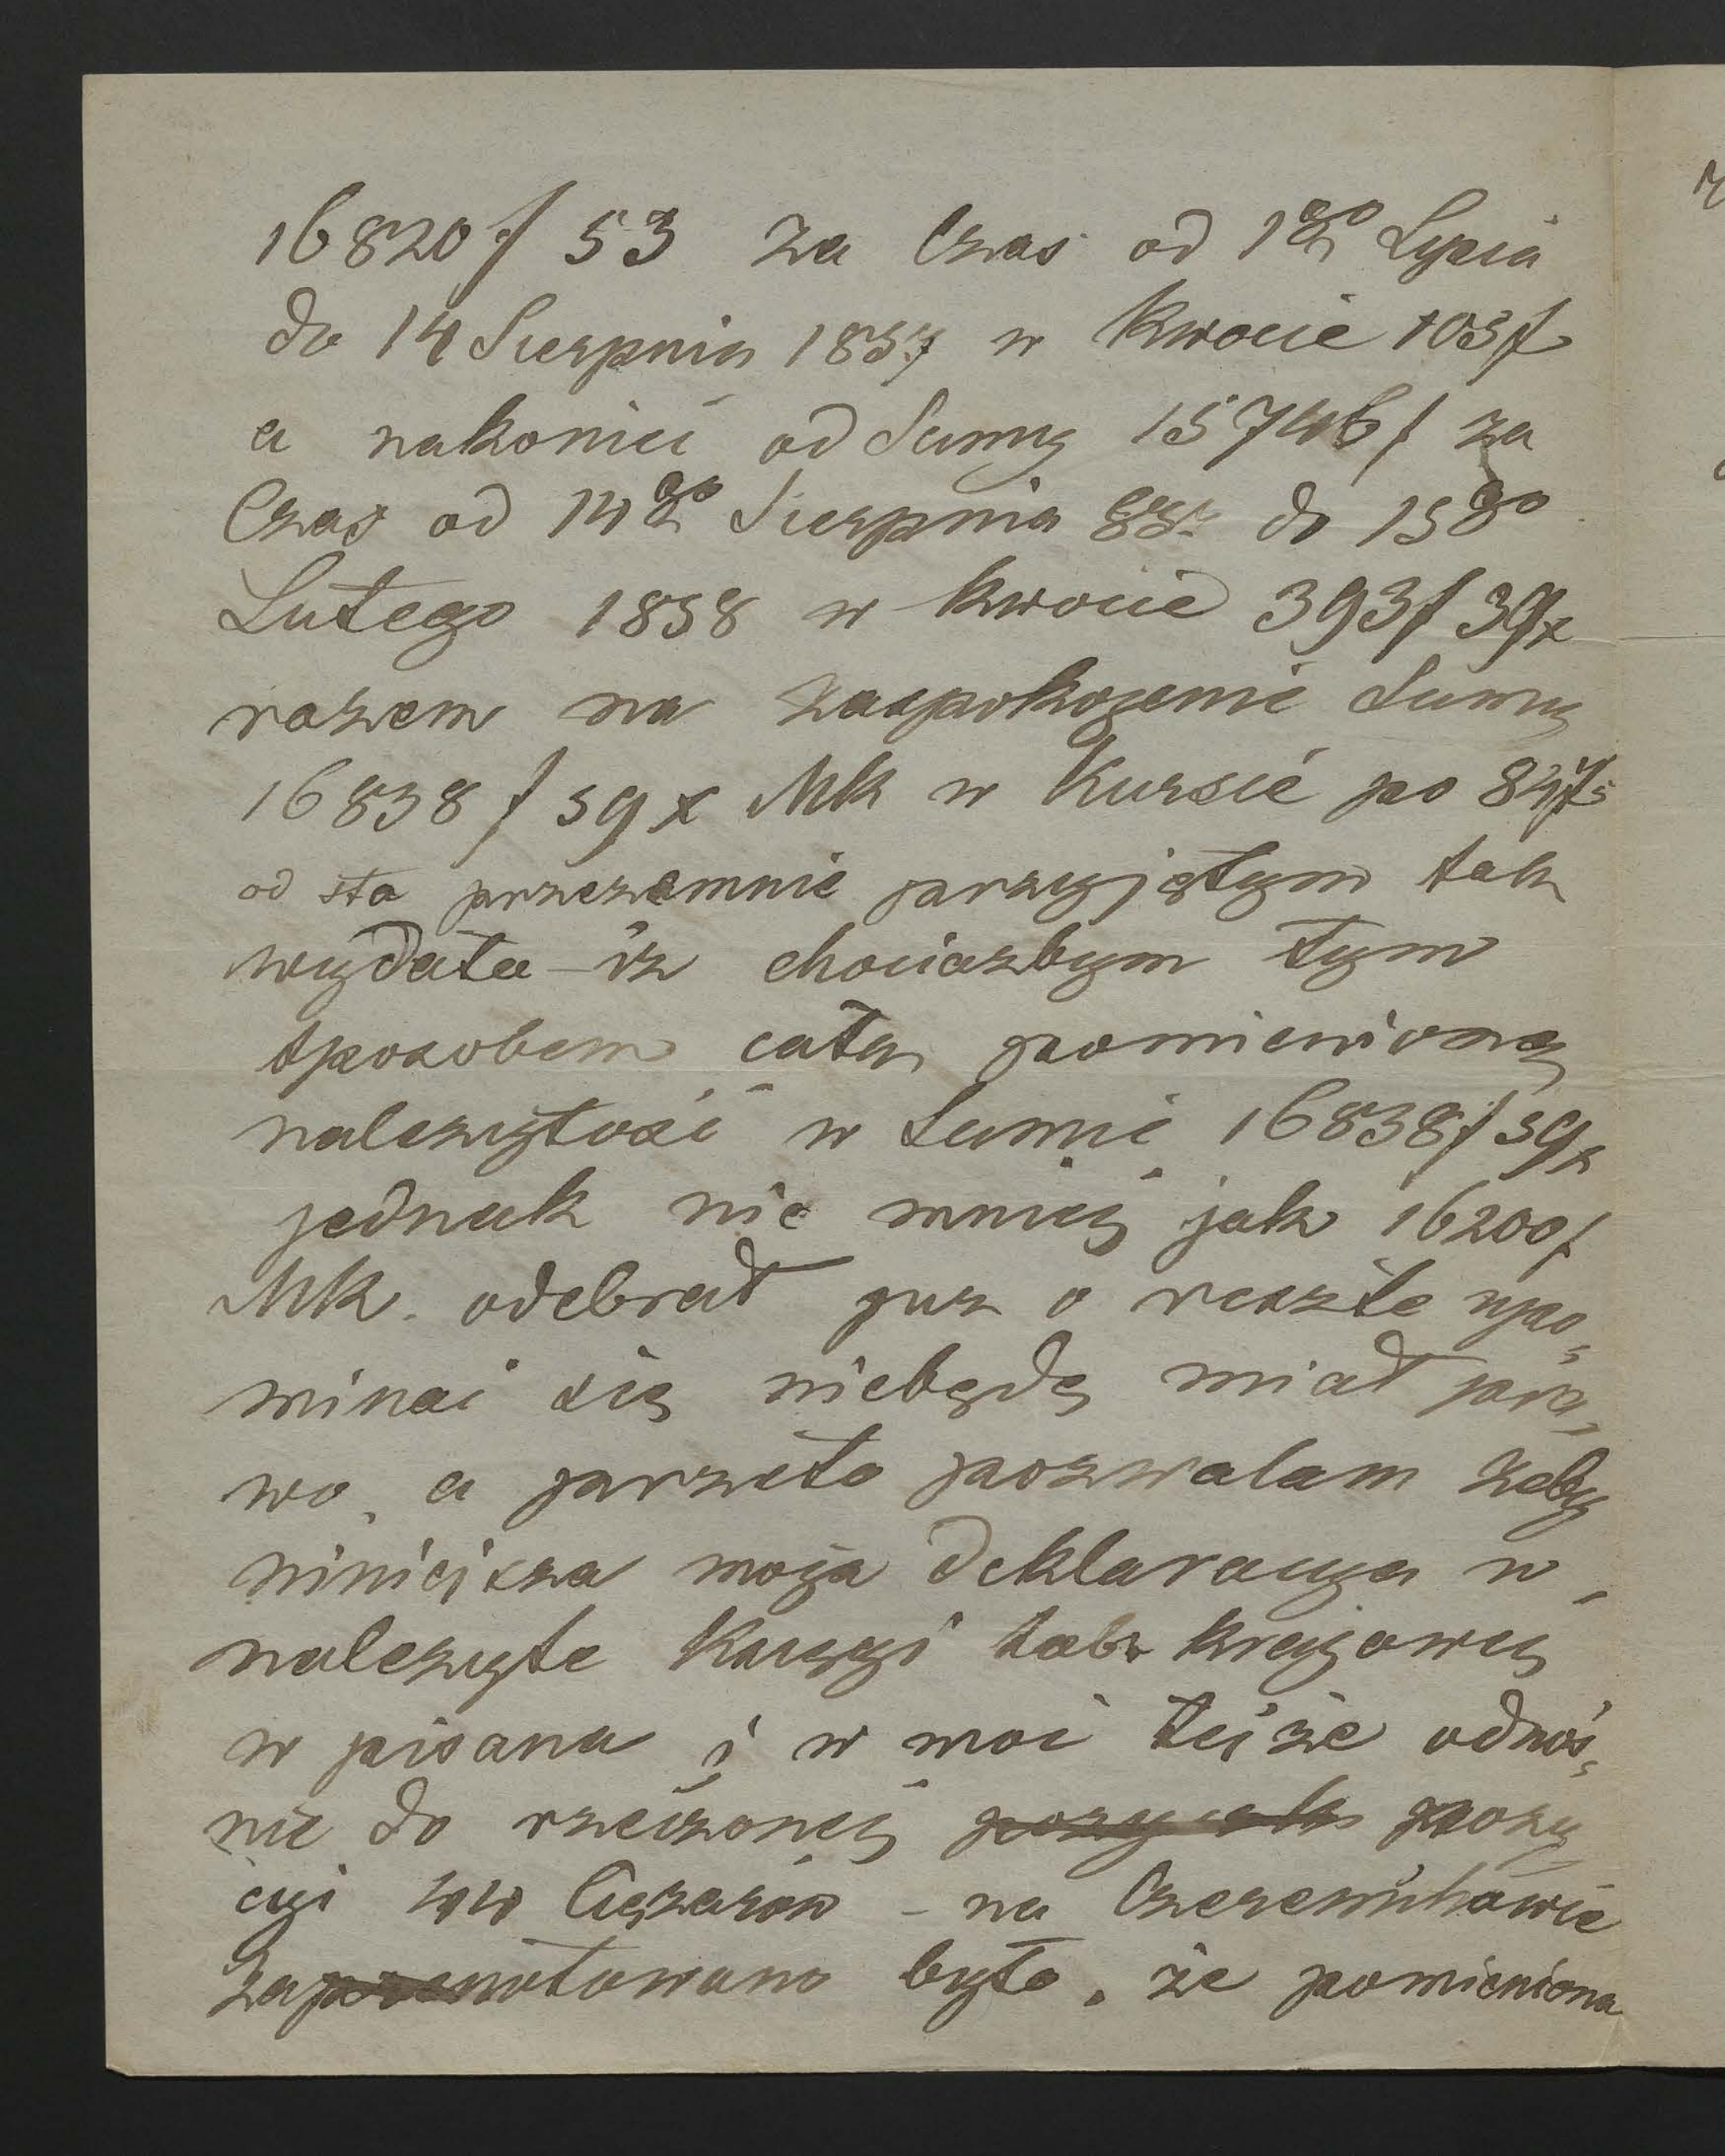 16820 f 53 za Czas od 1go Lipca
do 14 Sierpnia 1857 w kwocie 105 f
a nakoniec od Sumy 15746 f za
Czas od 14go Sierpnia 857 do 15go
Lutego 1858 w kwocie 393 f 39 x
razem na zaspokojenie Sumy
16838 f 59 x MK w Kursie po
od sta przezemnie przyjętym tak
wydała – iz chociazbym tym
sposobem całą pomienioną
nalezytość w Sumie 16838 f 59 x
jednak nie mniej jak 16200 f
MK. odebrał juz o resztę upo„
minać się niebędę miał pra„
wo, a przeto pozwalam zeby
niniejsza moja deklaracya w
nalezyte Księgi tab. krajowej
w pisana i w moc tejże odnoś„
nie do rzeczonej pozy
cyi ww Ciężarów – na Czeremchowie
Zanotowano było, że pomieniona